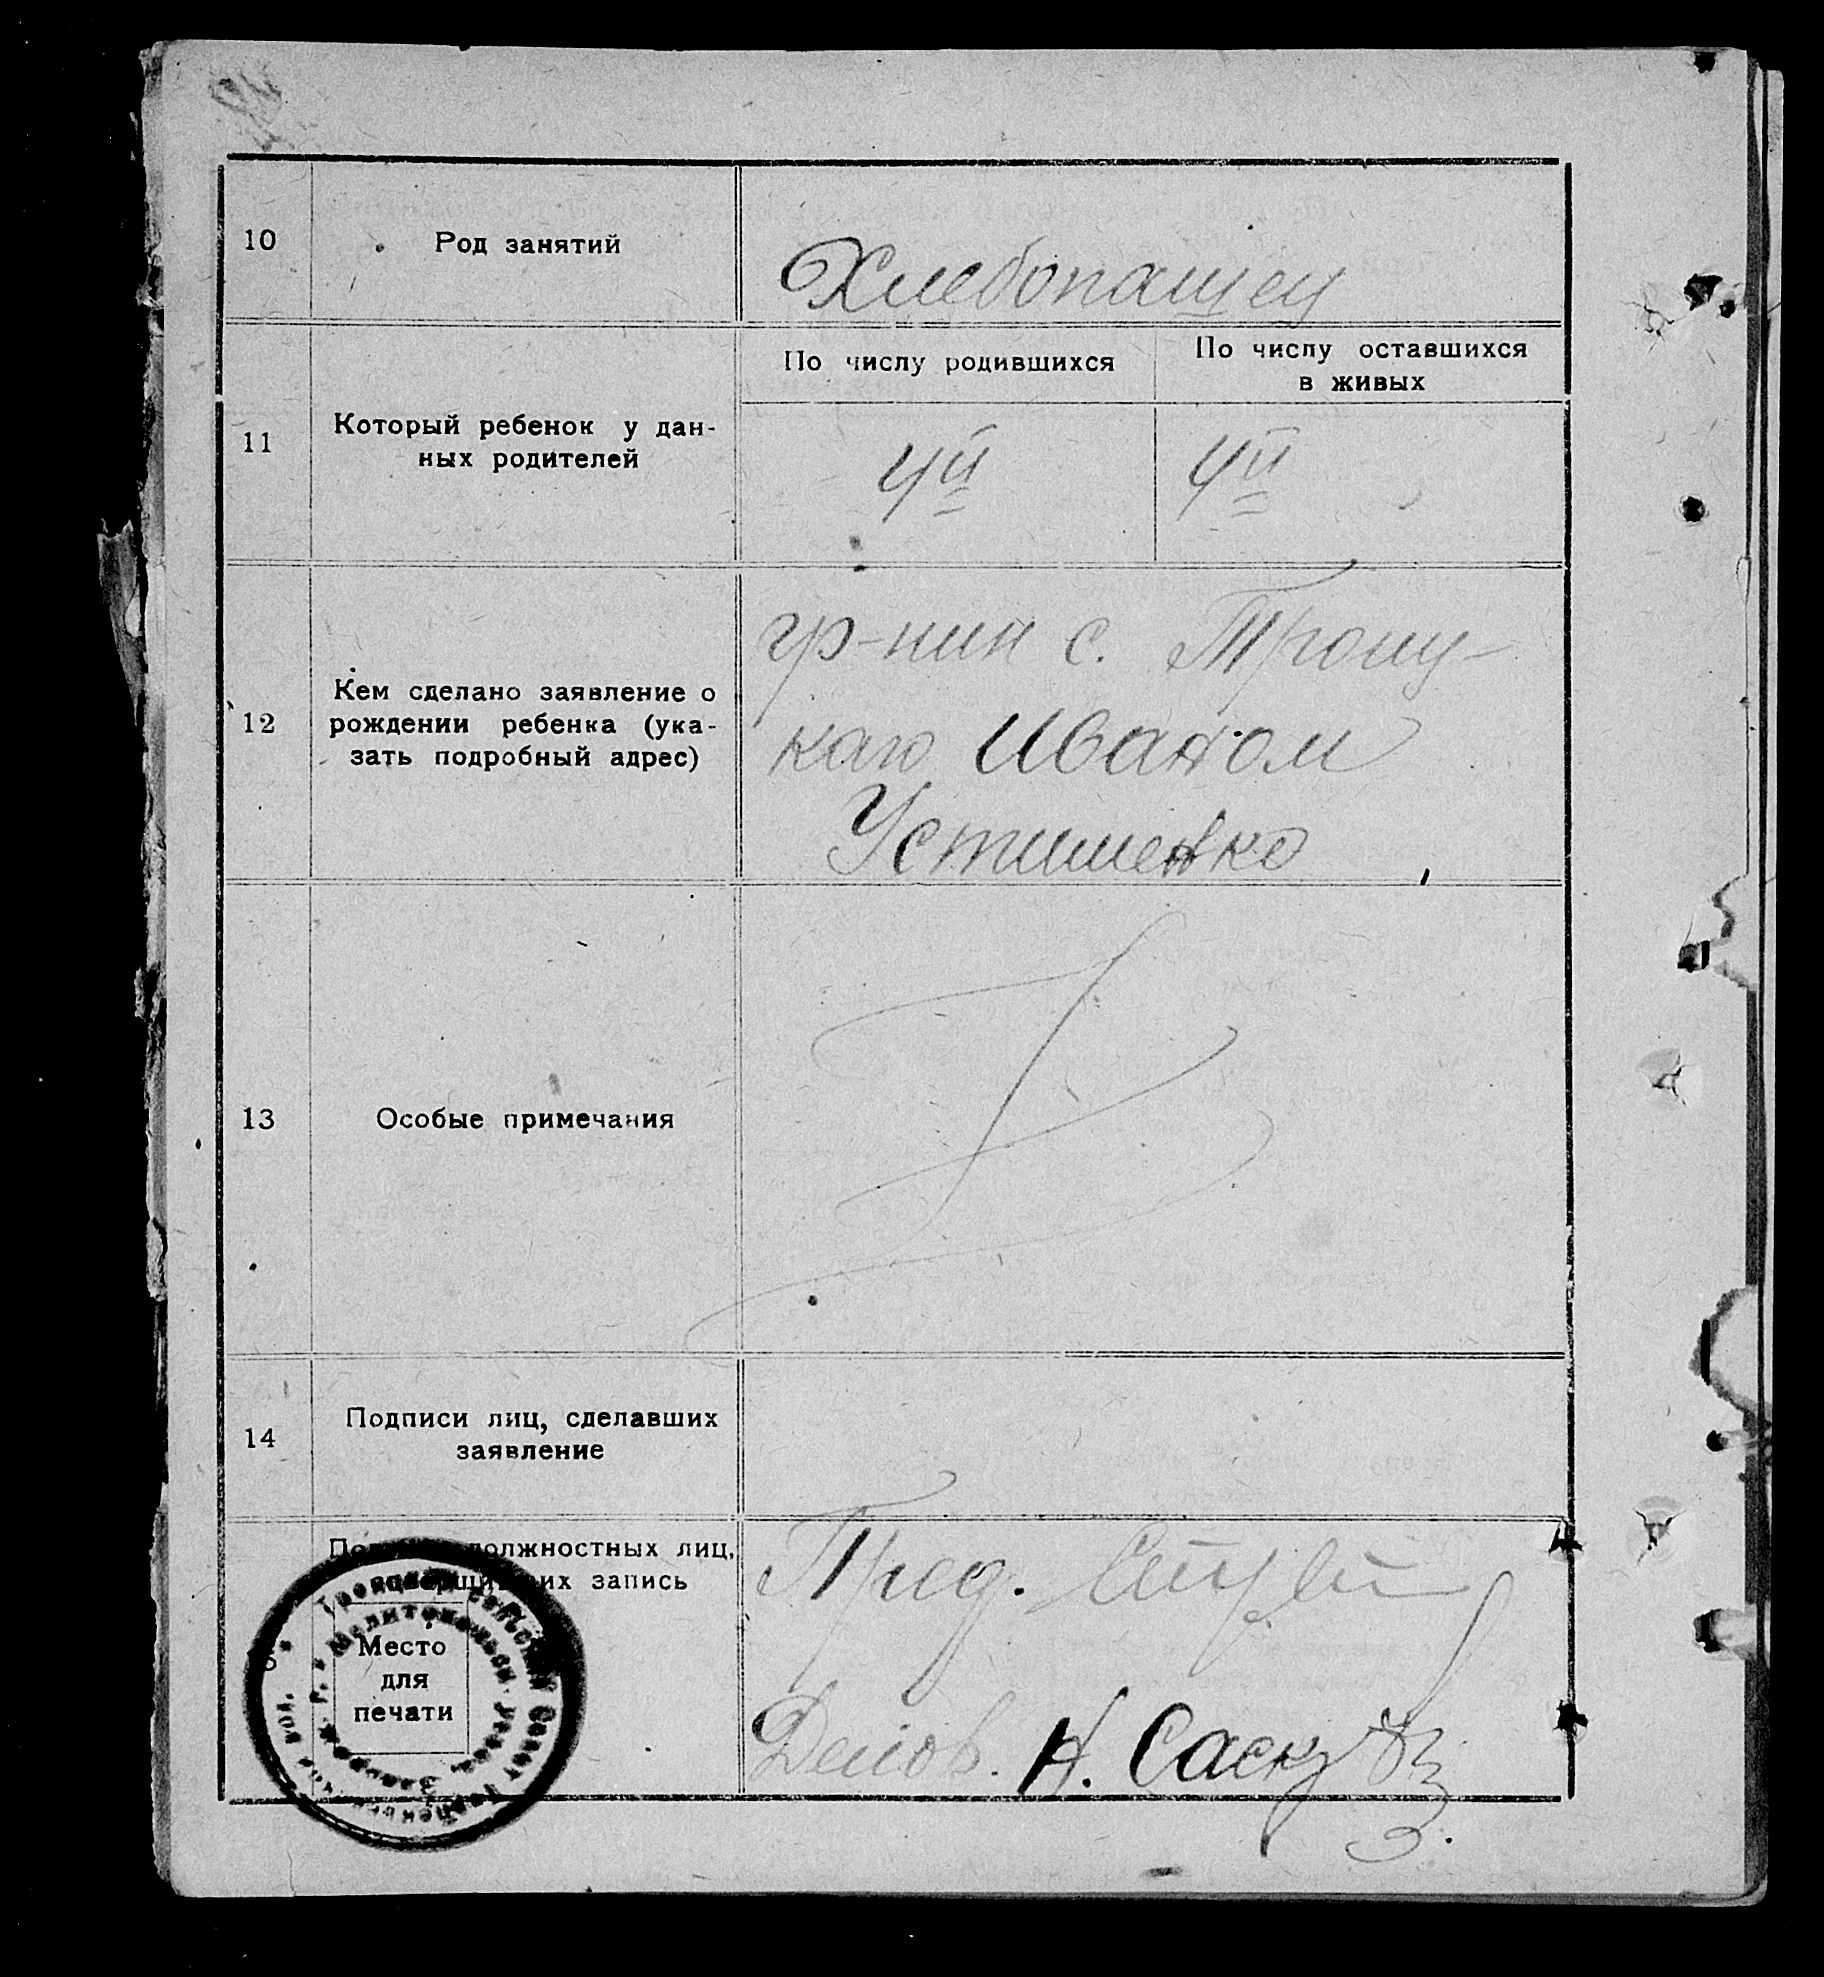 10
Род занятий
Хлебопащец
11
Который ребенок у дан-
ных родителей
По числу родившихся
По числу оставшихся
в живых
4й
4й
12
Кем сделано заявление о
рождении ребенка (ука-
зать подробный адрес)
гр-нин с. Троиц-
каго Иваном
Устименко
13
Особые примечания
14
Подписи лиц, сделавших
заявление
должностных лиц,
запись
Место
для
печати
Троицкий сельский Совет
Мелитопольск. уезд.
Пред.
Делов. Н.